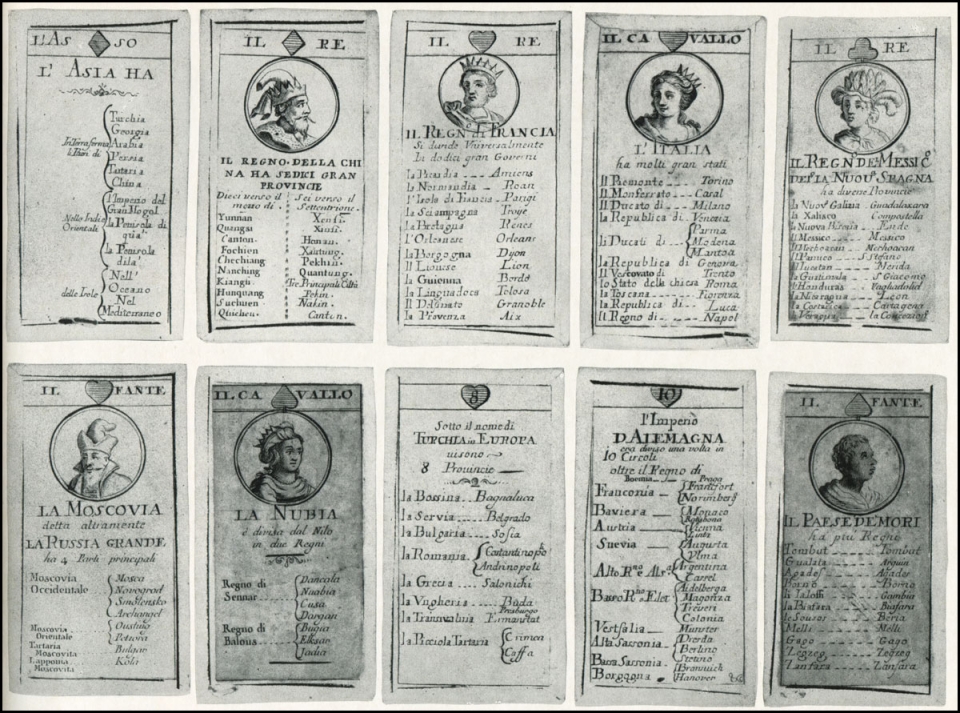 L'AS SO
L' ASIA HA
In Terraferma
i Paesi di
Turchia
Georgia
Arabia
Persia
Tartaria
China
Nello Indie
Orientale
l'Imperio del
Gran Mogol
la Penisola di
qua'
la Penisola
dila'
delle Isole
Nell'
Oceano
Nel
Mediterraneo
IL RE
IL REGNO DELLA CHI
NA HA SEDICI GRAN
PROVINCIE
Dieci verso il Sei verso il
mezzo di Settentrione.
Yunnan Xensi.
Quangsi Xansi.
Canton. Honan.
Fochien Xantung.
Chechiang Pekhin.
Nanching Quantung.
Kiangsi Tre Principali Città
Hunquang Pekin.
Suchuen Nakin.
Quicheu. Canten.
IL RE
IL REGN. DI FRANCIA
Si divide Universalmente
In dodici gran Governi
la Picardia Amiens
la Normandia Roan
l'Isola di Francia Parigi
la Sciampagna Troye
la Bretagna Renes
l'Orleanese Orleans
la Borgogna Dyon
Il Lionese Lion
la Guienna Bordò
la Linguadocs Tolosa
Il Delfinato Granoble
la Provenza Aix
IL CA VALLO
L'ITALIA
ha molti gran stati
Il Piemonte Torino
Il Monferrato Casal
Il Ducato di Milano
la Republica di Venezia
li Ducati di
Parma
Modena
Mantoa
la Republica di Genova
Il Vescovato di Trento
lo Stato della chiesa Roma
la Toscana Fiorenza
la Republica di Luca
Il Regno di Napol
IL RE
IL REGN. DEL MESSI C.
DELA NUOV. SPAGNA
ha diverse Provincie
la Nuov. Galizia Guadalaxara
la Xalisco Compostella
la Nuova Biscaia
Il Messico Messico
Il Mechoacan Mechoacan
Il Panuco S. Stefano
Il Iucatan Merida
la Guatimala S. Giacomo
l'Honduras Vagliadolid
la Nicaragua Leon
la Costaricca Cartagena
la Veragua la Concezion
IL FANTE
LA MOSCOVIA
detta altramente
LA RUSSIA GRANDE
ha 4 Parti principali
Moscovia
Occidentale
Mosca
Novogrod
Smolensko
Archangel
Moscovia
Orientale
Oustiug
Petzora
Tartaria
Moscovita
Bulgar
Lapponia
Moscovita
Kola
IL CA VALLO
LA NUBIA
è divisa dal Nilo
in due Regni
Regno di
Sennar
Dancala
Nuabia
Cusa
Dargan
Regno di
Baloua
Bugia
Elksar
Jadia
8
Sotto il nome di
TURCHIA in EUROPA
vi sono
8 Provincie
la Bossina Bagnaluca
la Servia Belgrado
la Bulgaria Sofia
la Romania
Costantinop.
Andrinopoli
la Grecia Salonichi
la Vngheria Buda
Presburgo
la Transilvania Ermanstat
la Picciola Tartaria
Crimea
Caffa
10
l'Imperio
D'ALEMAGNA
era diviso una volta in
10 Circoli
oltre il Regno di
Boemia Praga
Franconia
Francfort
Norimberg
Baviera
Monaco
Ratisbona
Austria
Vienna
Lintz
Suevia
Augusta
Vlma
Alto R.no e Als.
Argentina
Cassel
Basso R.no Elet
Aidelberga
Magonza
Treveri
Colonia
Vestfalia Munster
Alta Sassonia
Dresda
Berlino
Stetino
Bassa Sassonia Brunsvich
Borgogna Hanover &c
IL FANTE
IL PAESE DE MORI
ha più Regni
Tombut Tombut
Gualata Arguin
Agades Agades
Borno Borno
li Ialoffi Gambia
la Biafara Biafara
le Sousos Beria
Melli Melli
Gago Gago
Zegzeg Zegzeg
Zanfara Zanfara